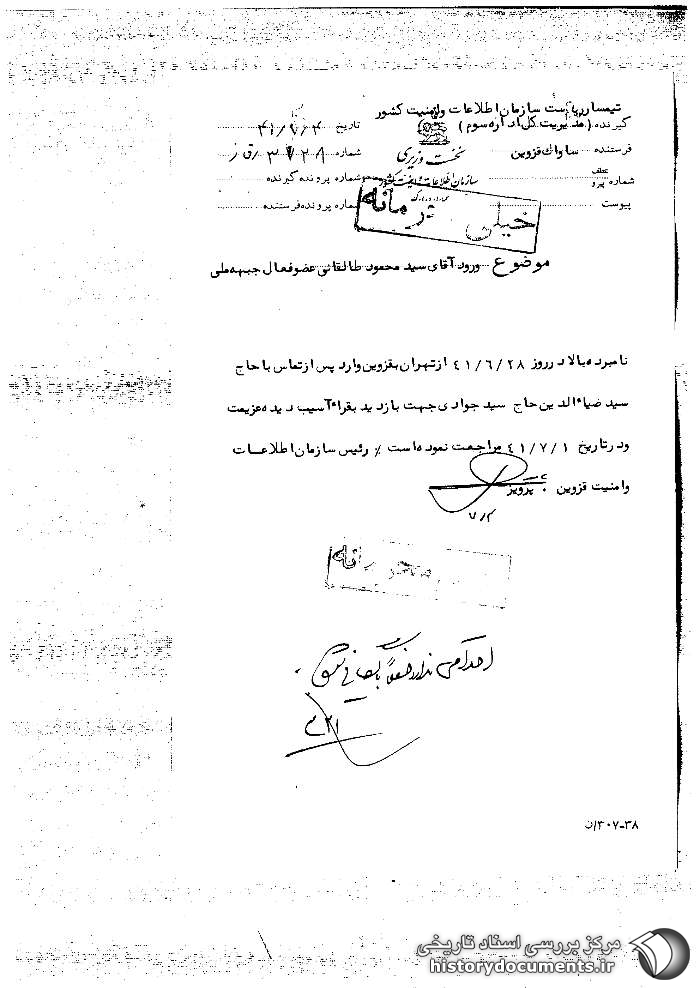 تیمسار ریاست سازمان اطلاعات و امنیت کشور
گیرنده ( مدیریت کل اداره سوم )
تاریخ
فرستنده ساواک قزوین
نخست وزیری
شماره
سازمان اطلاعات و امنیت کشور
شماره عطف پیرو
شماره پرونده گیرنده
پیوست
شماره پرونده فرستنده
خیلی محرمانه
موضوع ورود آقای سید محمود طالقانی عضو فعال جبهه ملی
نامبرده بالا در روز ۴۱/۶/۲۸ از تهران بقزوین وارد پس از تماس با حاج
سید ضیاءالدین حاج سید جوادی جهت بازدید بقراء آسیب دیده عزیمت
و در تاریخ ۴۱/۷/۱ مراجعت نموده است ٪ رئیس سازمان اطلاعات
و امنیت قزوین . پرویز
محرمانه
۳۰۷-۳۸
مرکز بررسی اسناد تاریخی
historydocuments.ir